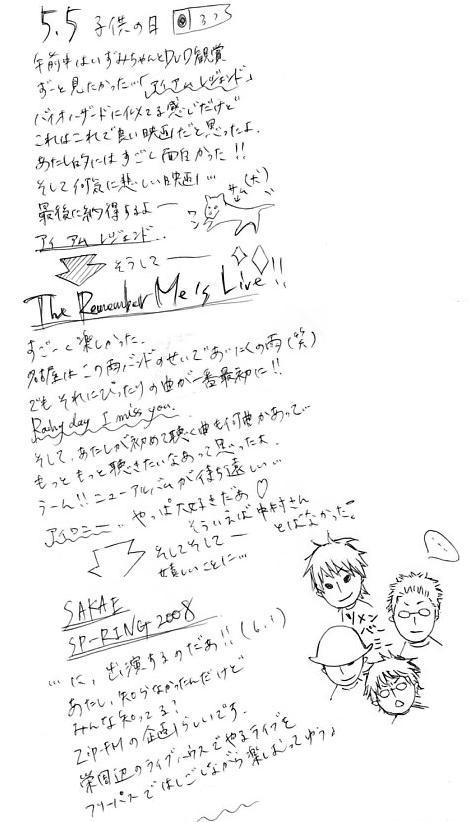 5.5 子供の日
午前中はいずみちゃんとDVD観賞
ずーと見たかった…「アイアムレジェンド」
バイオハザードに似てる感じだけど
これはこれで良い映画だと思ったよ.
あたし的にはすごく面白かった!!
そして何気に悲しい映画…
最後に納得するよー
サム(犬)
ワン
アイ アム レジェンド..
そうしてー
The Remember Me's Live!!
すごーく楽しかった.
名古屋はこの雨バンドのせいであいにくの雨(笑)
でもそれにぴったりの曲が一番最初に!!
Rainy day I miss you.
そして、あたしが初めて聴く曲も何曲かあって…
もっともっと聴きたいなあって思ったよ.
うーん!!ニューアルバムが待ち遠しい…
やっぱ大好きだあ♡
そういえば中村さん
とばなかった?
そしてそしてー
嬉しいことに…
SAKAE
SP-RING 2008
…に、出演するのだぁ!!(6.1)
あたし、知らなかったんだけど
みんな知ってる?
ZIP-FMの企画らしいです.
栄周辺のライブハウスでやるライブを
フリーパスではしごしながら楽しむってゆう♪